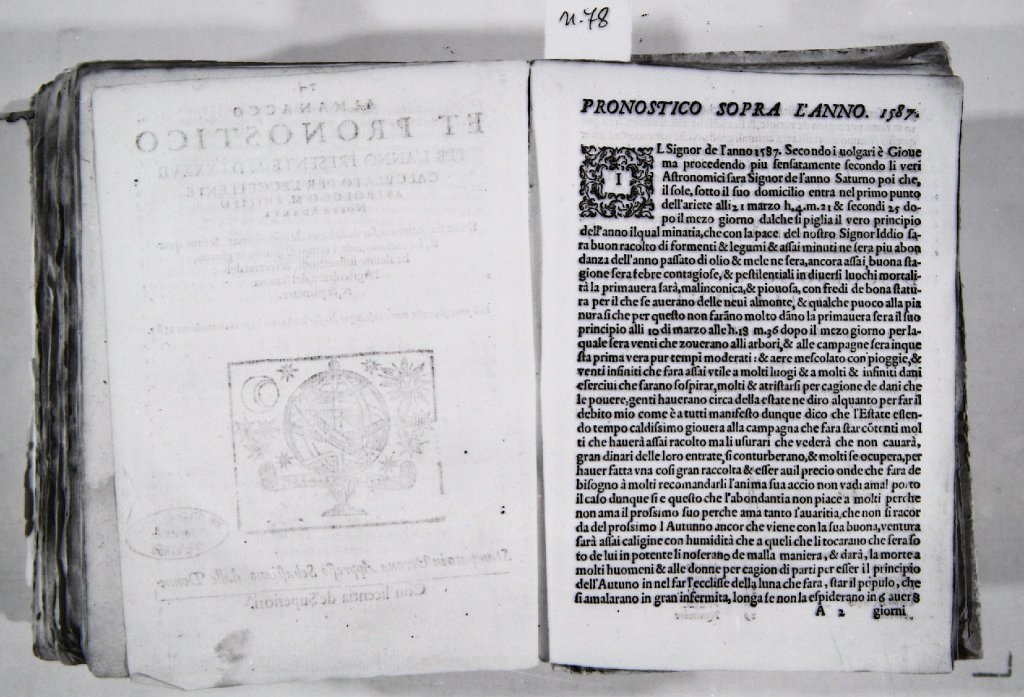 n. 78
PRONOSTICO SOPRA L'ANNO. 1587.
IL Signor de l'anno 1587. Secondo i uolgari è Gioue
ma procedendo piu sensatamente secondo li veri
Astronomici sara Signor de l'anno Saturno poi che,
il sole, sotto il suo domicilio entra nel primo punto
dell'ariete alli 21 marzo h. 4. m. 21 & secondi 25 do-
po il mezo giorno dalche si piglia il vero principio
dell'anno il qual minatia, che con la pace del nostro Signor Iddio sa
ra buon racolto di formenti & legumi & assai minuti ne sera piu abon
danza dell'anno passato di olio & mele ne sera, ancora assai, buona sta-
gione sera febre contagiose, & pestilentiali in diuersi luochi mortali-
tà la primauera sarà, malinconica, & piouosa, con fredi de bona statu-
ra per il che se auerano delle neui almonte, & qualche puoco alla pia
nura si che per questo non farãno molto dãno la primauera sera il suo
principio alli 10 di marzo alle h. 18 m. 36 dopo il mezo giorno per la-
quale sera venti che zouerano alli arbori, & alle campagne sera in que
sta prima vera pur tempi moderati: & aere mescolato con pioggie, &
venti infiniti che fara assai vtile a molti luogi & a molti & infiniti dani
eserciui che farano sospirar, molti & atristarsi per cagione de dani che
le pouere, genti hauerano circa della estate ne diro alquanto per far il
debito mio come è a tutti manifesto dunque dico che l'Estate essen-
do tempo caldissimo giouera alla campagna che fara star cõtenti mol
ti che hauerà assai racolto ma li usurari che vederà che non cauarà,
gran dinari delle loro entrate, si conturberano, & molti se ocupera, per
hauer fatta vna cosi gran raccolta & esser a uil precio onde che fara de
bisogno à molti recomandarli l'anima sua accio non vadi a mal porto
il caso dunque si e questo che l'abondantia non piace a molti perche
non ama il prossimo suo perche ama tanto l'auaritia, che non si racor
da del prossimo l Autunno ancor che viene con la sua buona, ventura
sarà assai caligine con humidità che a queli che li tocarano che sera so
to de lui in potente li noserano de malla maniera, & darà, la morte a
molti huomeni & alle donne per cagion di parti per esser il principio
dell'Autuno in nel far l'ecclisse della luna che fara, star il populo, che
si amalarano in gran infermita, longa se non la espiderano in 6 auer 8
A 2 giorni